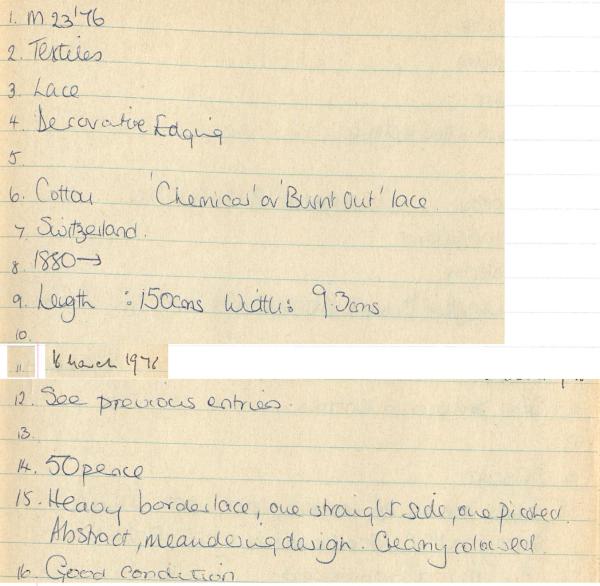 1. M 23'76
2. Textiles
3. Lace
4. Decorative Edging
5.
6. Cotton 'Chemical' or 'Burnt Out' lace.
7. Switzerland.
8. 1880→
9. Length : 150cms Width: 9.3cms
10.
11. March 1976
12. See previous entries.
13.
14. 50 pence
15. Heavy border lace, one straight side, one picoted.
Abstract, meandering design. Creamy coloured.
16. Good condition